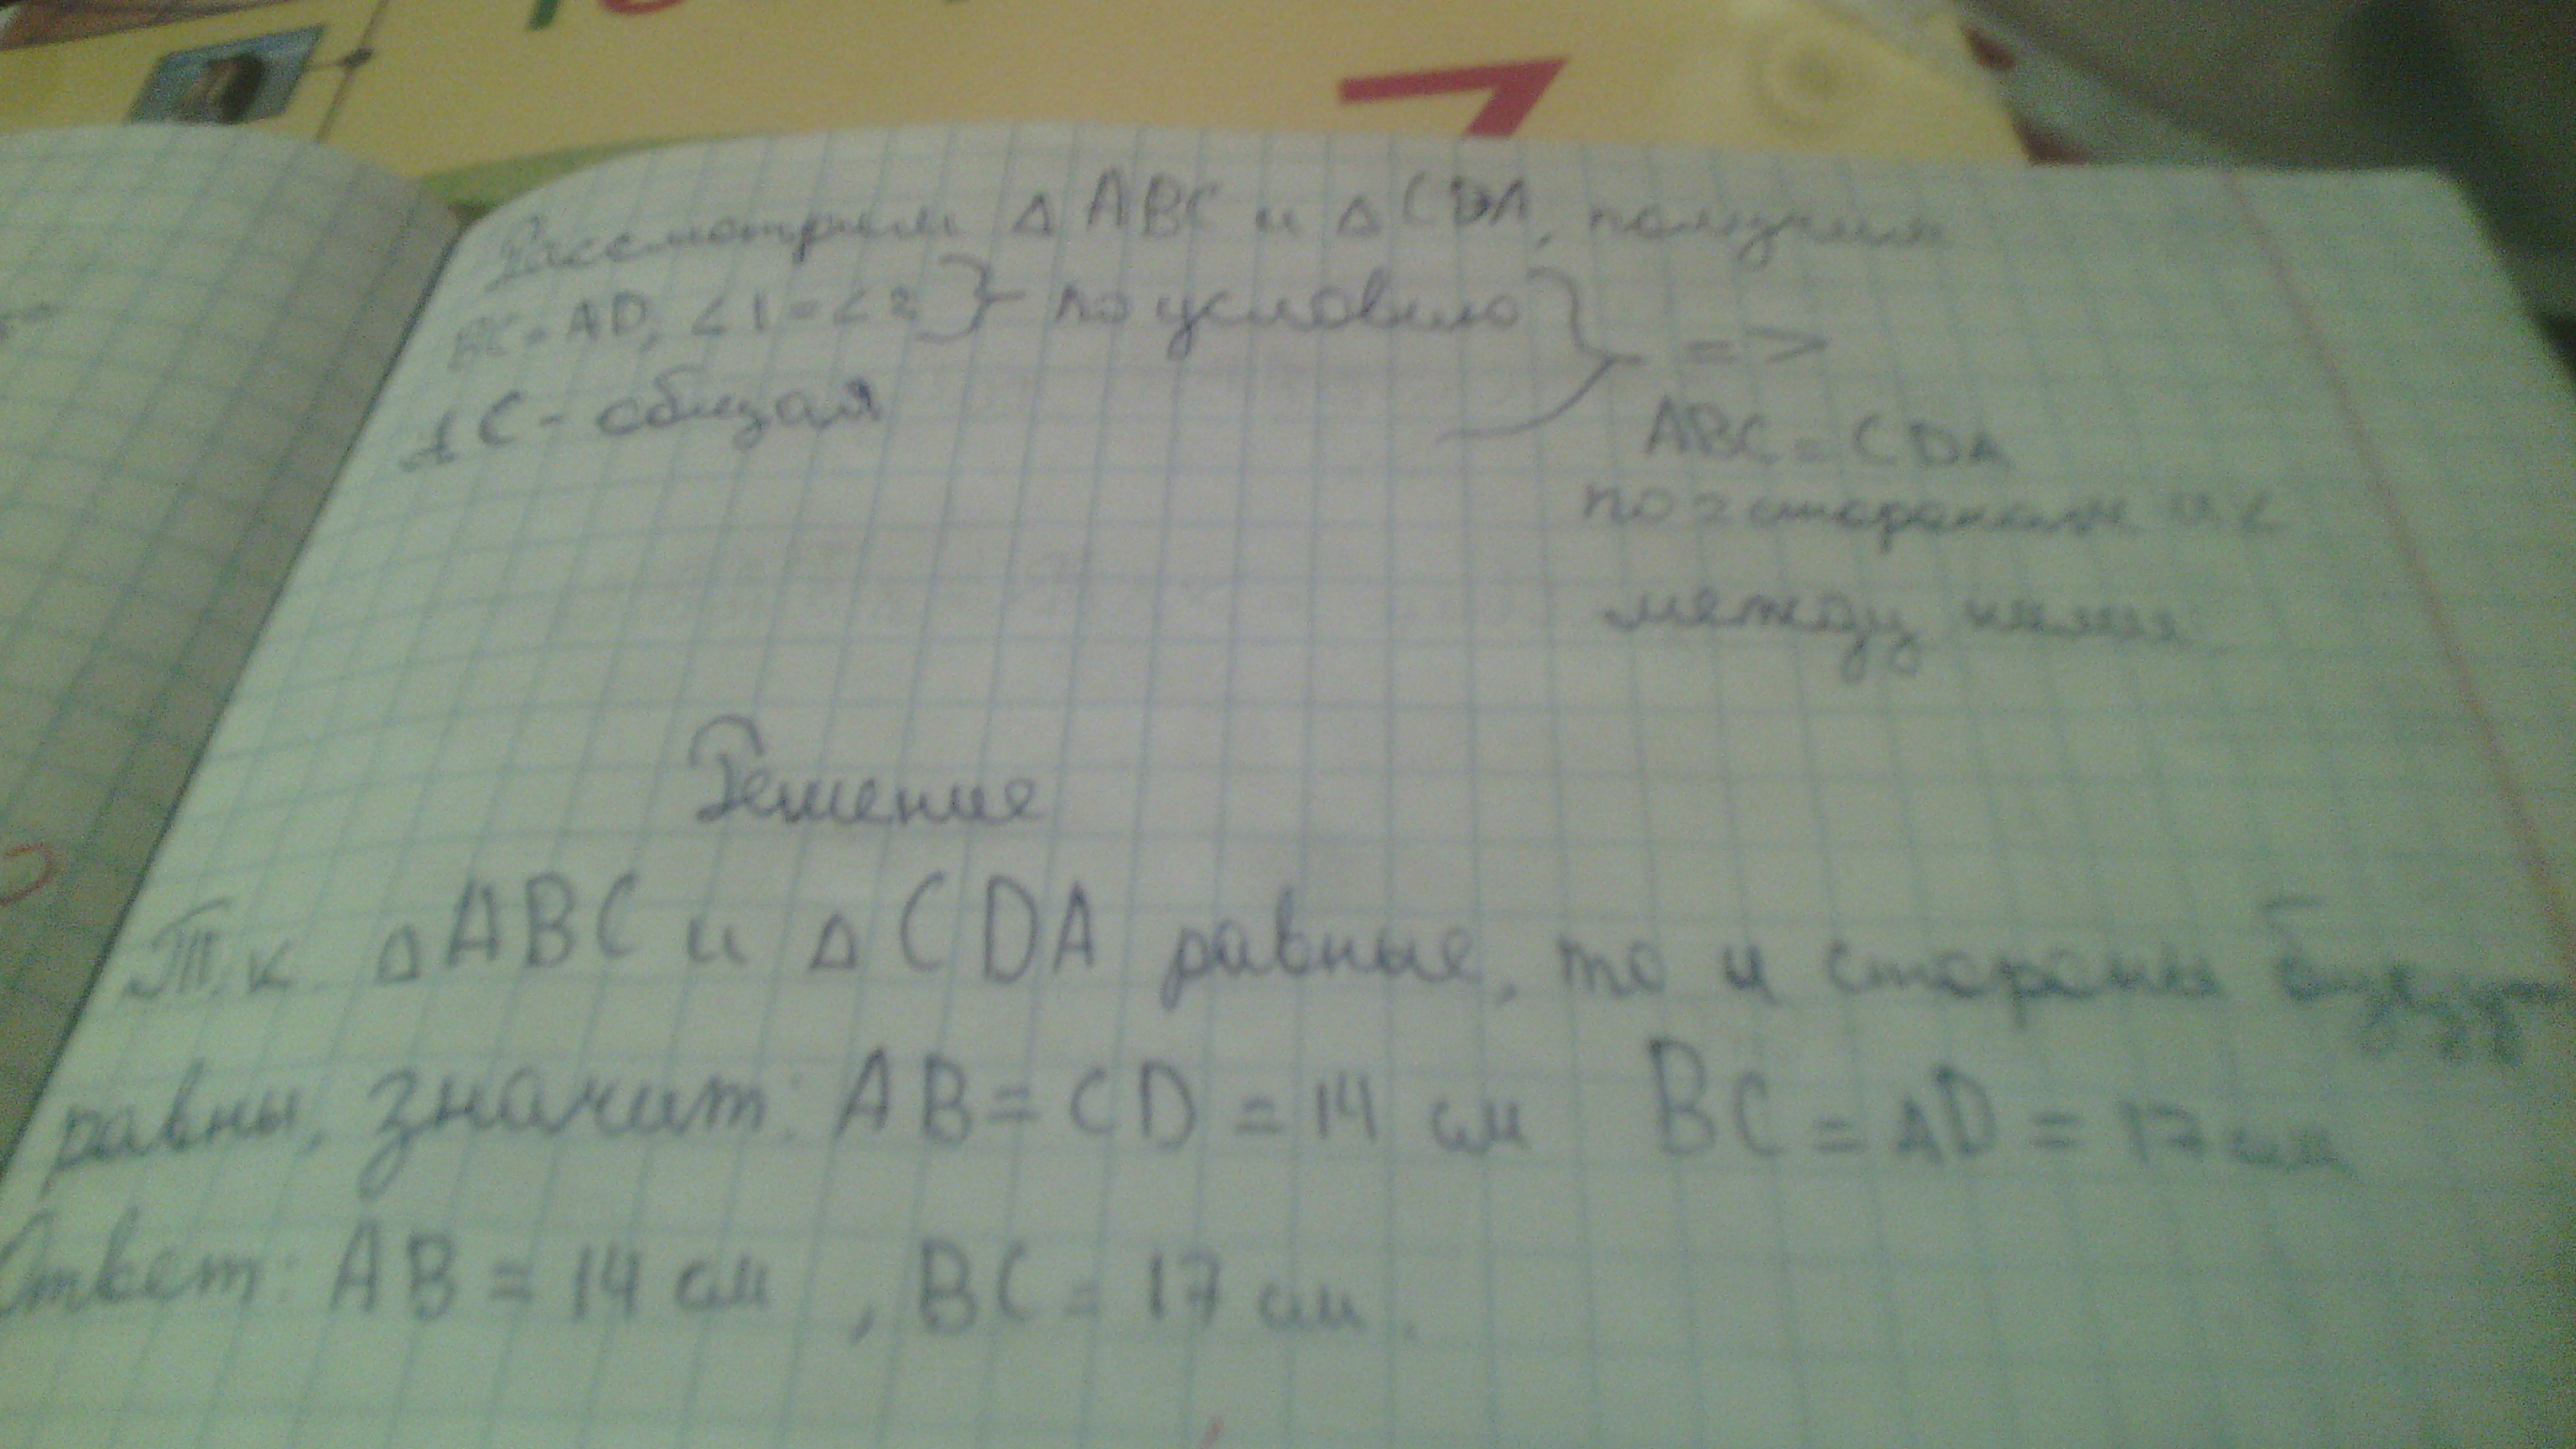 7
Рассмотрим △ABC и △CDA, получим
BC=AD, <1=<2 }- по условию } =>
AC-общая
ABC=CDA
по 2 сторонам и <
между ними
Решение
Т.к. △ABC и △CDA равные, то и стороны будут
равны, значит: AB=CD=14 см BC=AD=17см
Ответ: AB=14 см, BC=17 см.